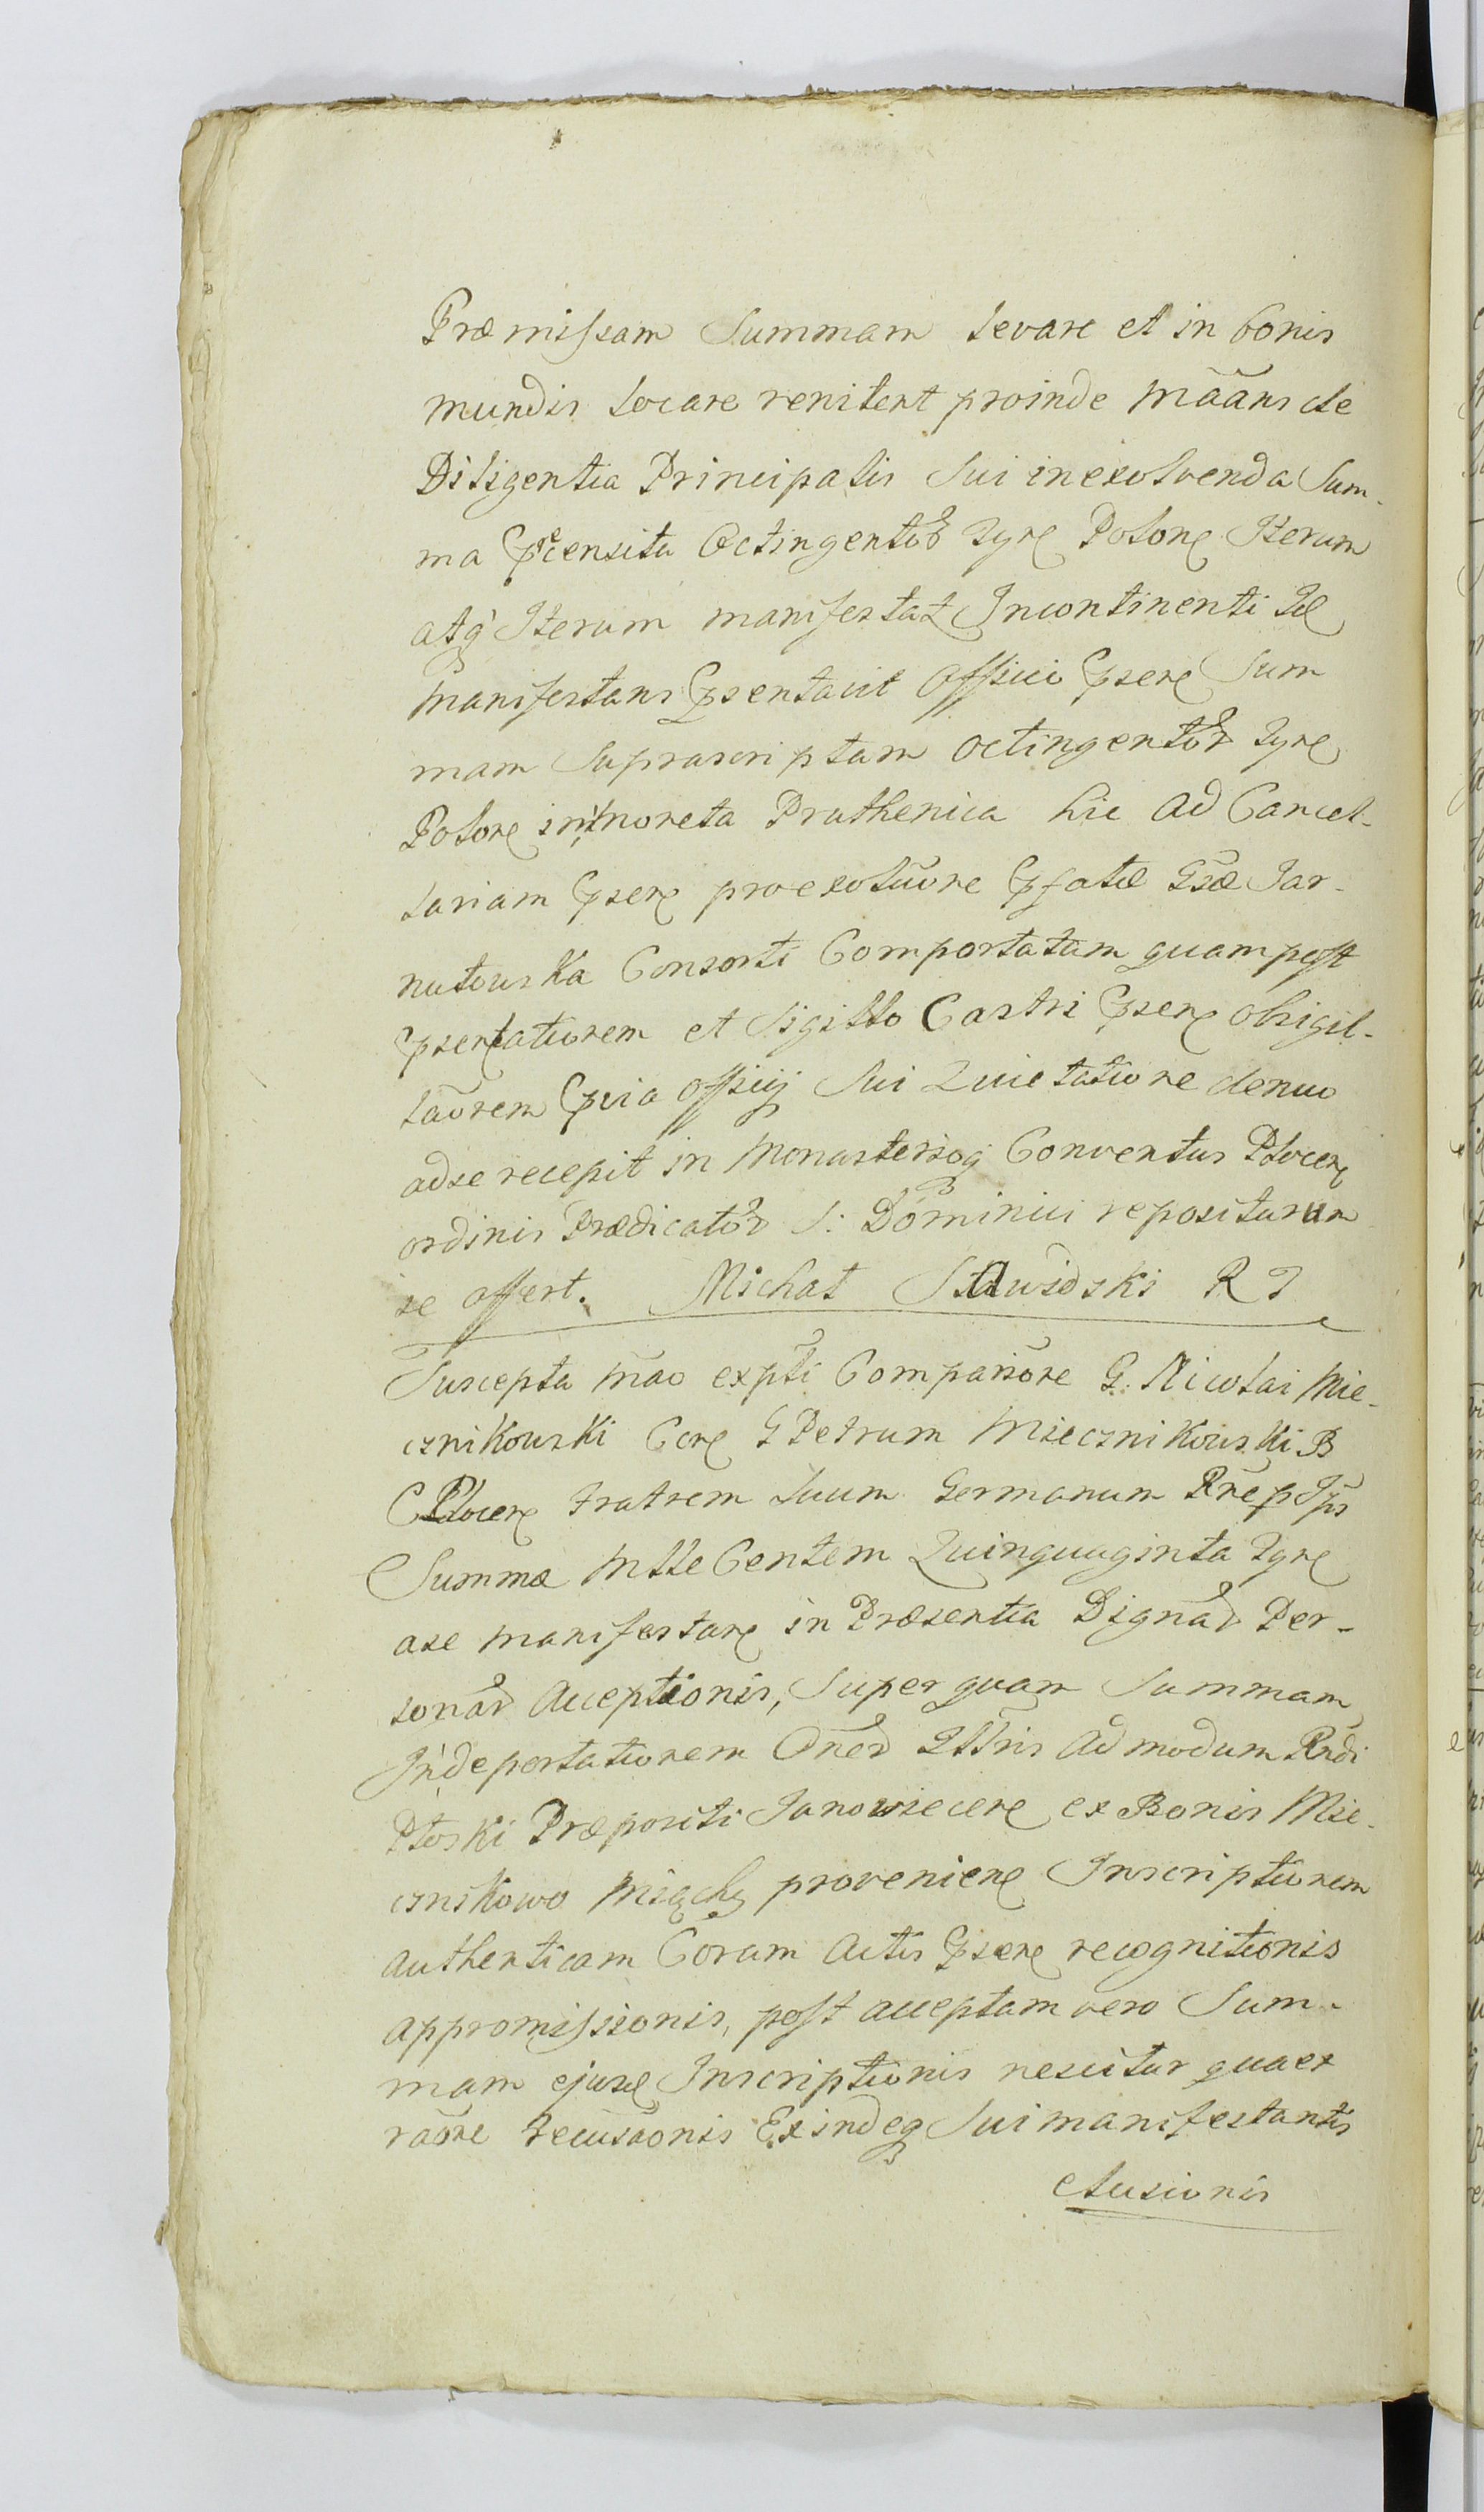 Præmissam Summam levare et in bonis
mundis locare renitent proinde Mããns de
Diligentia Principalis Sui in exolvenda Sum-
ma Precensita Octingentor Tyre Polone Iterum
atq Iterum manifestat Incontinenti Id
Manifestans Psentavit Officio Psene Sum
mam Suprascriptam Octingentor Tyre
Polone in moneta Pruthenica hic ad Cancel-
lariam Psene pro exolũone Pfatæ Gsæ Jar-
nutowska Consorti Comportatam quam post
Psentationem et Sigillo Castri Psene obsigil-
laõrem Pvia Officij Sui Quietatione denuo
ad se recepit in Monasterioq Conventus Plocene
ordinis Prædicator S: Dominici repositurum
se offert. Michał Sławidzki R T
Suscepta Mão expti Compariõne G. Nicolai Mie-
cznikowski Cone G Petrum Miecznikowski B
C Plocene Fratrem Suum Germanum Rne p Ips
Summæ Mlle Centem Quinquaginta Tyre
a se manifestane in Præsentia Dignar Per-
sonar Acceptionis, Super quam Summam
In deportationem Oner Illris Admodum Rndi
Płoski Præpositi Janowiecene ex Bonis Mie-
cznikowo Miąchy proveniene Inscriptionem
authenticam Coram Actis Psene recognitionis
appromissionis, post acceptam vero Sum-
mam ejusd Inscriptionis nescitur qua ex
raõne recusaonis Exindeq Sui manifestantis
elusionis